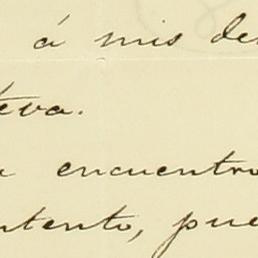 á mis de
teva.
encuentro
ntento, pue